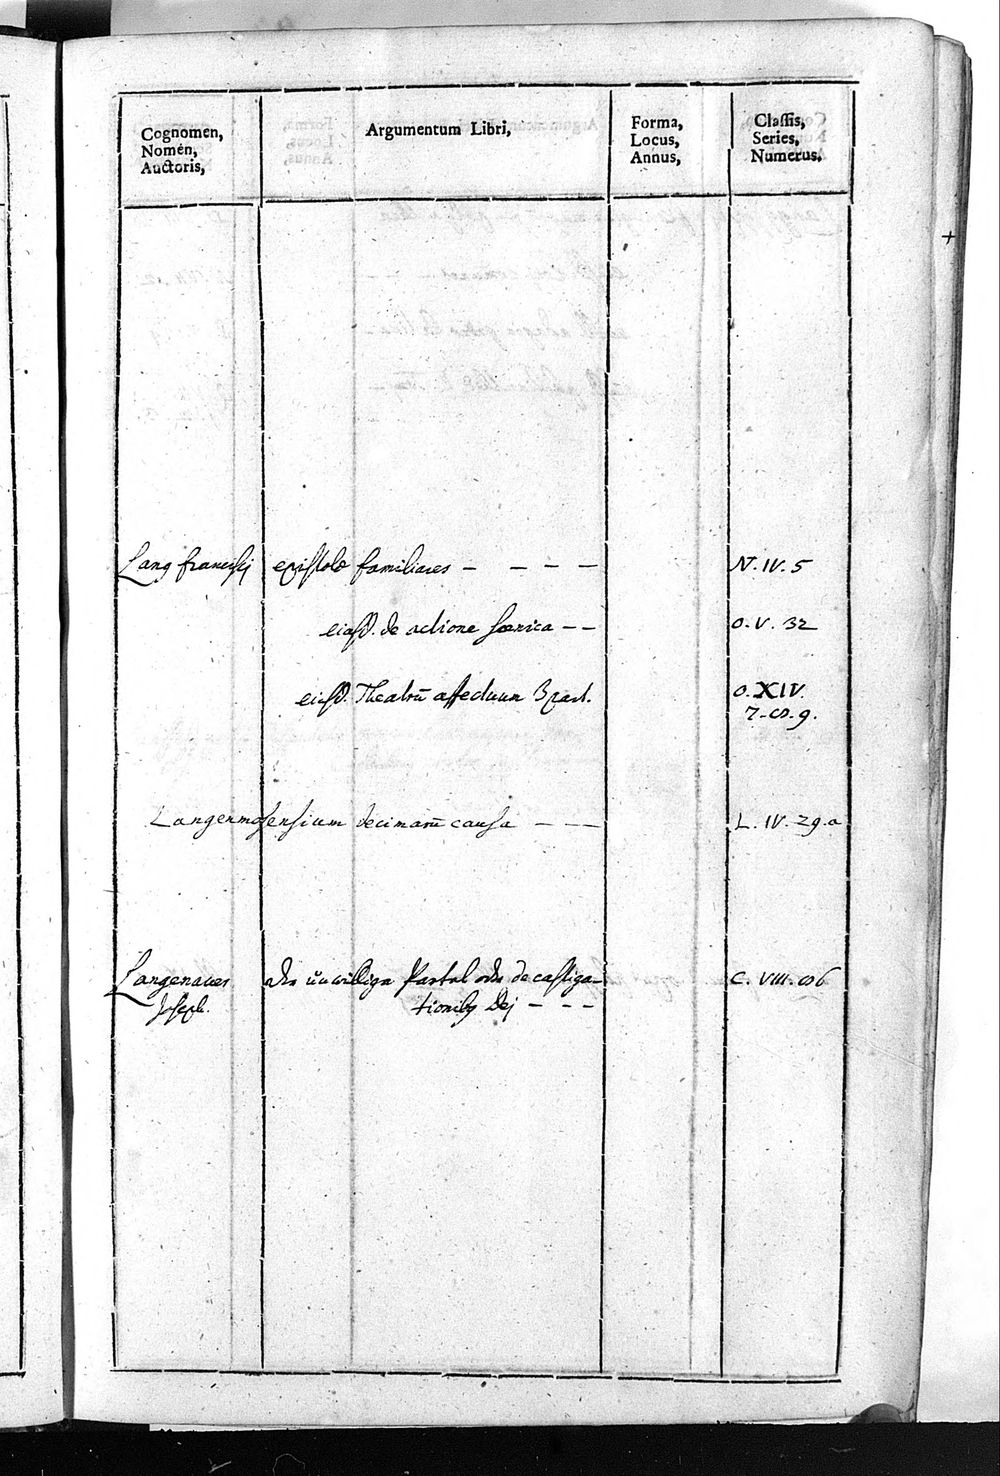 Cognomen,
Nomen,
Auctoris,
Argumentum Libri,
Forma,
Locus,
Annus,
Classis,
Series,
Numerus.
Lang francisci epistolæ familiares - - - - N. IV. 5
eiusd. de actione scenica - - O. V. 32
eiusd. Theatrū affectuum 3 part. O. XIV.
7. 8. 9.
Langenmosensium decimarū causa - - - L. IV. 29. a
Langenauer der unwillige Postal oder de castiga- C. VIII.
Joseph. tionibus Dei - - -